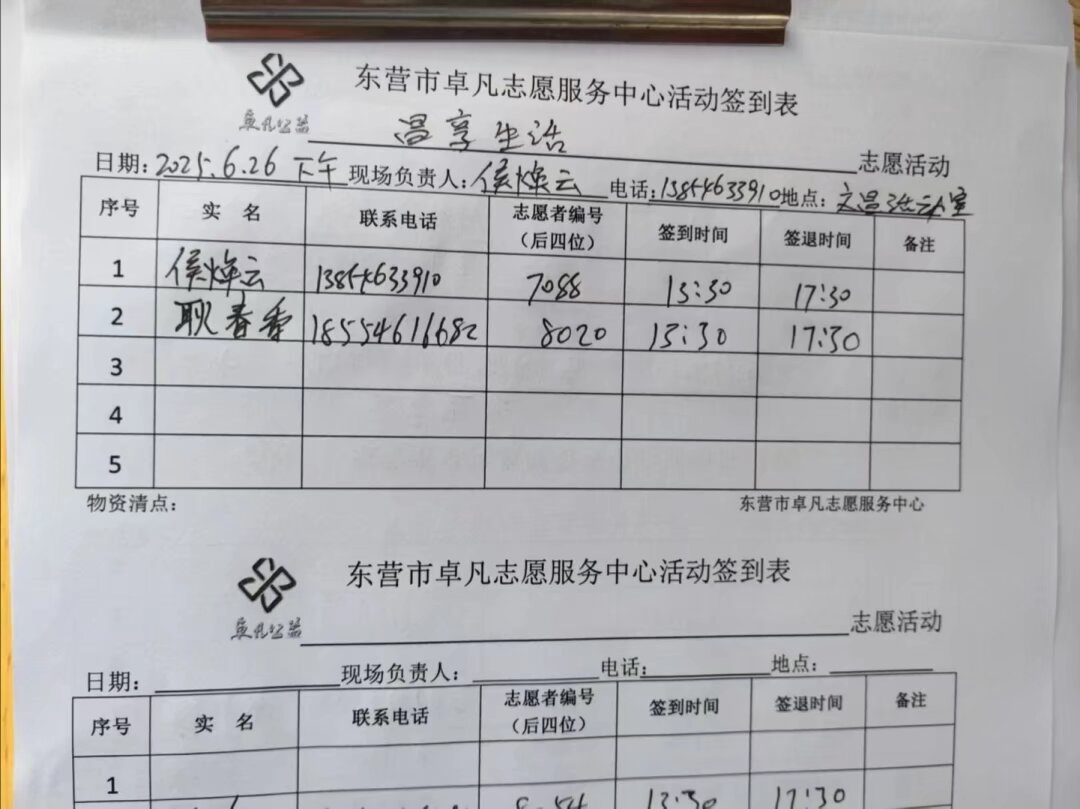 东营市卓凡志愿服务中心活动签到表
卓凡公益 温享生活 志愿活动
日期:2025.6.26 下午 现场负责人:侯焕云 电话:13854633910 地点:文温活动室
序号 实 名 联系电话 志愿者编号(后四位) 签到时间 签退时间 备注
1 侯焕云 13854633910 7088 13:30 17:30
2 耿春香 18554616682 8020 13:30 17:30
3
4
5
物资清点: 东营市卓凡志愿服务中心
东营市卓凡志愿服务中心活动签到表
卓凡公益 志愿活动
日期: 现场负责人: 电话: 地点:
序号 实 名 联系电话 志愿者编号(后四位) 签到时间 签退时间 备注
1
13:30 17:30